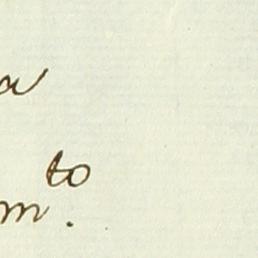 a
to
m.